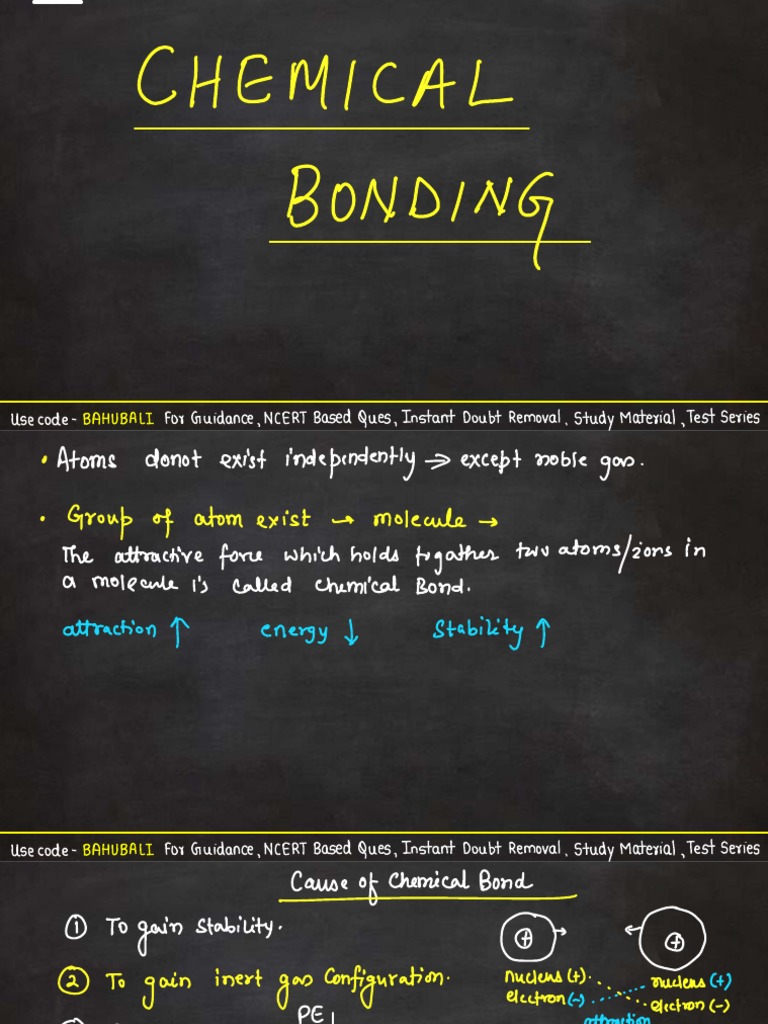 CHEMICAL
BONDING
Use code - BAHUBALI For Guidance, NCERT Based Ques, Instant Doubt Removal, Study Material, Test Series
• Atoms donot exist independently → except noble gas.
• Group of atom exist → molecule →
The attractive force which holds togather two atoms/ions in
a molecule is called Chemical Bond.
attraction ↑ energy ↓ Stability ↑
Use code - BAHUBALI For Guidance, NCERT Based Ques, Instant Doubt Removal, Study Material, Test Series
Cause of Chemical Bond
① To gain Stability.
② To gain inert gas Configuration.
+ +
nucleus (+) nucleus (+)
electron (-) electron (-)
PE
attraction